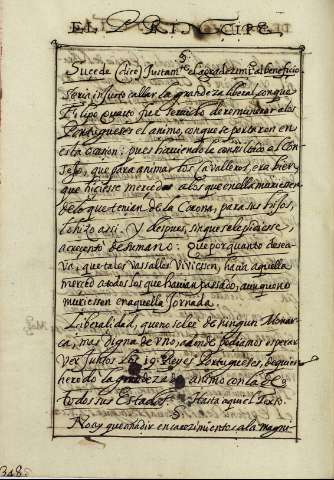 EL PRINCIPE.
§
Suçede (dirè) Justam.te el agradezimi.to al beneficio
seria injusto callar la grandeza liberal, con que
Filipo quarto fue servido de remunerar a los
Portugueses el animo, con que se portaron en
esta ocasion: pues haviendole consultado el Con
sejo, que para animar los Cavalleros, era bien
que hiciesse mercedes a los que en ella muriessen
de lo que tenian de la Corona, para sus hijos,
lo hizo assi. Y despues, sin que se le pidiesse,
acreçento de su mano: Que por quanto desea-
va, que tales Vassallos Viviessen, hacia aquella
merced a todos los que havian passado, aunque no
muriessen en aquella Jornada.
Liberalidad, que no se lee de ningun Monar-
ca, mas digna de Uno, adonde podiamos esperar
Ver Juntos los 19. Reyes Portugueses, de quien
heredo la grandeza animo con la
todos sus Estados. Hasta aqui el Texto.
§
No ay que añadir encarezimientos a la magni-
348